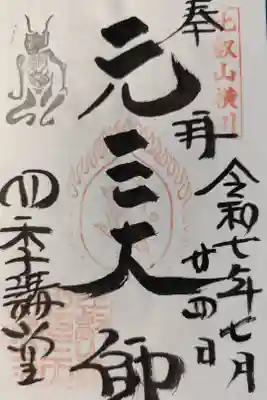 奉拝
比叡山横川
令和七年七月
廿四日
元三大師
四季講堂